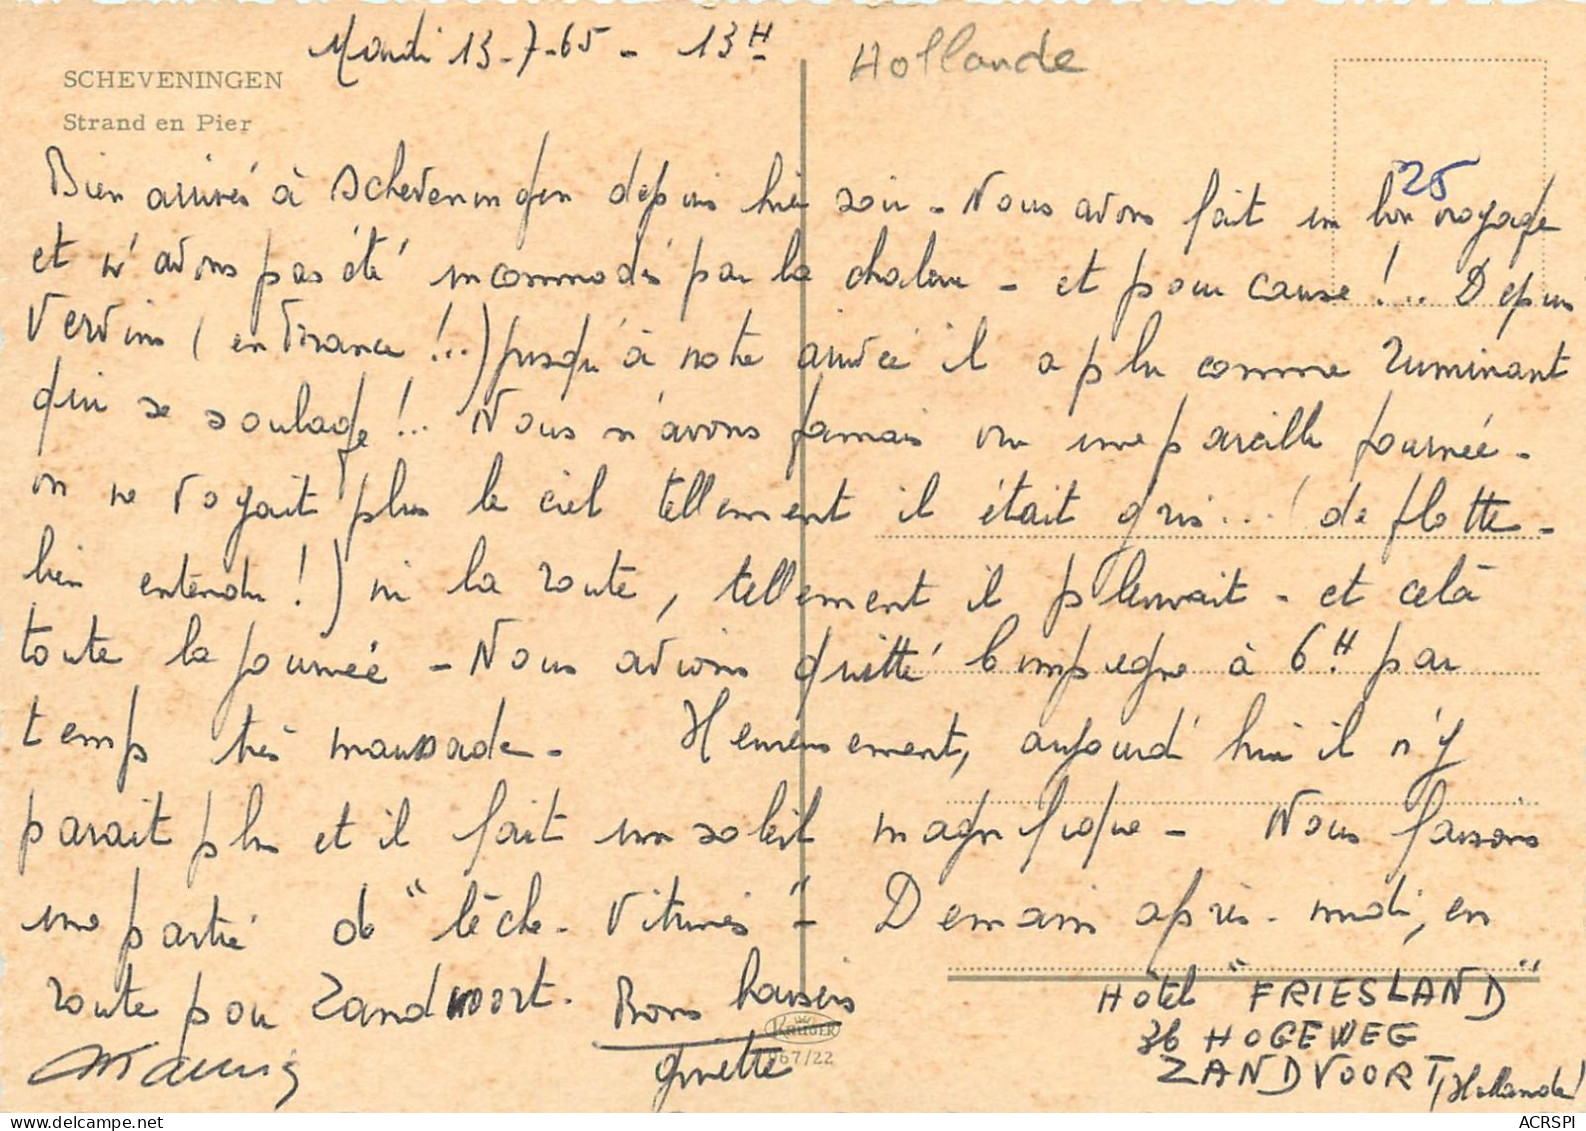 Mardi 13-7-65 - 13H
Hollande
SCHEVENINGEN
Strand en Pier
25
Bien arrivés à Scheveningen depuis hier soir - Nous avons fait un bon voyage
et n'avons pas été incommodés par la chaleur - et pour cause !.. Depuis
Vervins (en France !...) jusqu'à notre arrivée il a plu comme ruminant
qui se soulage !.. Nous n'avons jamais vu une pareille journée -
on ne voyait plus le ciel tellement il était gris... (de flotte -
bien entendu !) ni la route, tellement il pleuvait - et celà
toute la journée - Nous avions quitté Compiegne à 6H par
temps très maussade - Heureusement, aujourd'hui il n'y
parait plus et il fait un soleil magnifique - Nous faisons
une partie de "lèche-vitrines" - Demain après-midi, en
route pour Zandvoort. Bons baisers
Ginette
Maurice
KRÜGER
967/22
Hôtel "FRIESLAND"
36 HOGEWEG
ZANDVOORT (Hollande)
ACRSPI